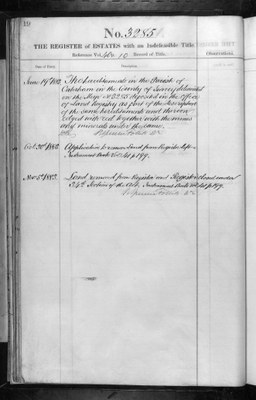 19
No. 3285
THE REGISTER of ESTATES with an Indefeasible Title
Reference Vol. 10 Record of Title.
Date of Entry.
Description.
The Hereditaments in the Parish of
Caterham in the County of Surrey delineated
on the Map No 3285 deposited in the Office
of Land Registry as part of the description
of the same hereditaments and thereon
edged with red together with the mines
and minerals under the same.
Oct 20th 1882 Application to remove Land from Register left.
Instrument Book Vol
Nov 15th 1883. Land removed from Register and Register closed under
34th Section of the Act. Instrument Book Vol